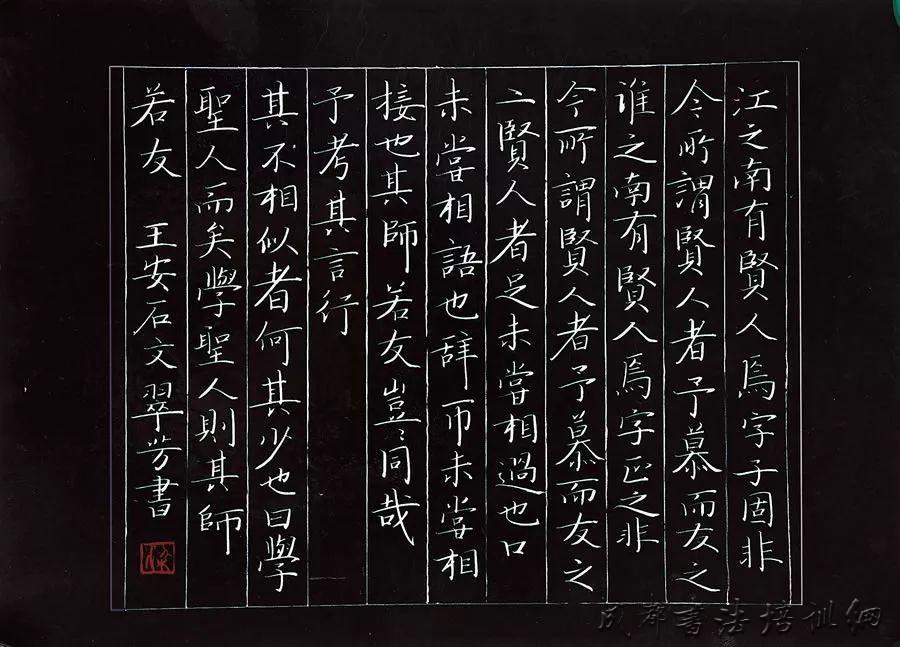 江之南有賢人焉字子固非
今所謂賢人者予慕而友之
淮之南有賢人焉字正之非
今所謂賢人者予慕而友之
二賢人者足未嘗相過也口
未嘗相語也辞币未嘗相
接也其師若友豈同哉
予考其言行
其不相似者何其少也曰學
聖人而矣學聖人則其師
若友 王安石文翠芳書
成都書法培训網